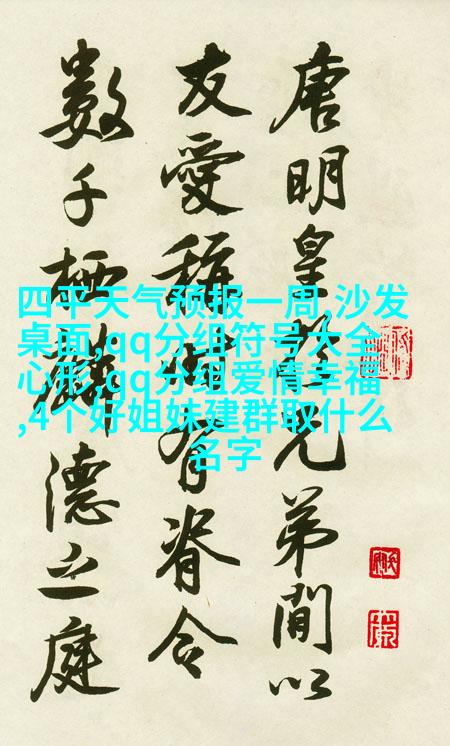 唐明皇於兄弟間以
友愛稱時有脊令
數千栖麟德之庭
四平天气预报一周,沙发
桌面,qq分组符号大全
心形,qq分组爱情幸福
,4个好姐妹建群取什么
名字